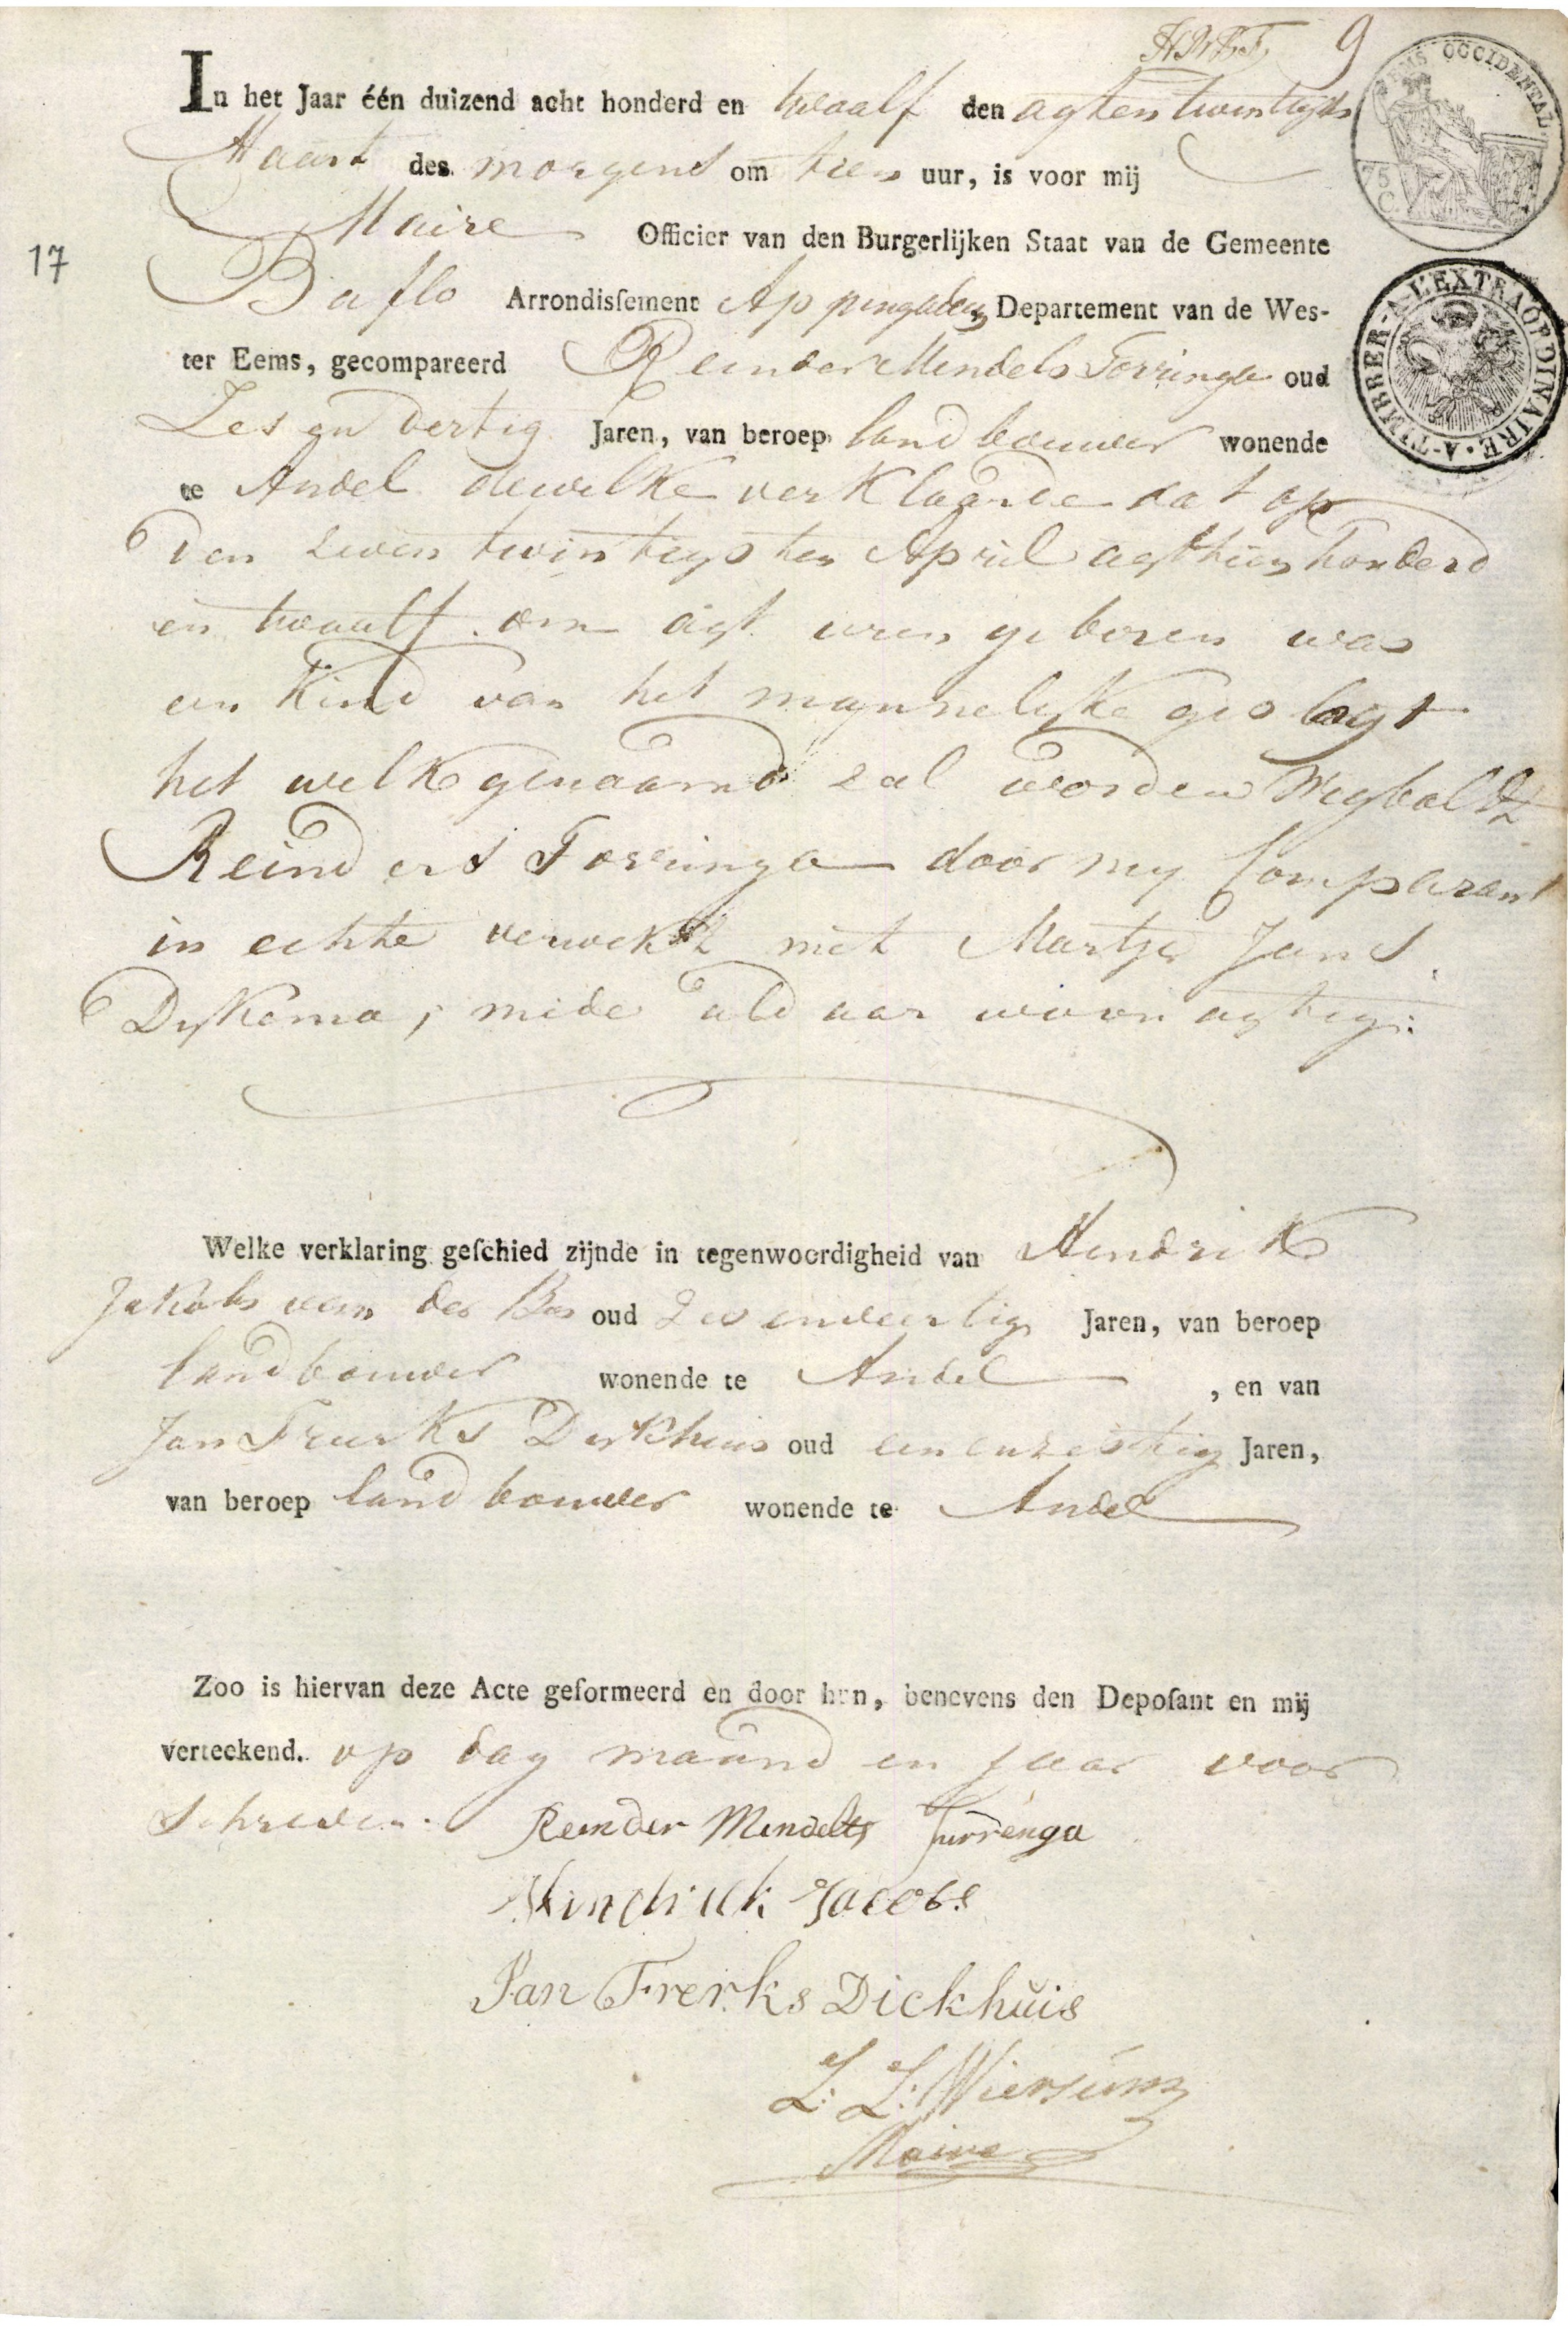 9
In het Jaar één duizend acht honderd en twaalf den agtentwintigste
Maart des morgens om tien uur, is voor mij
Maire Officier van den Burgerlijken Staat van de Gemeente
17
Baflo Arrondisſement Appingadam Departement van de Wes-
ter Eems, gecompareerd Reinder Mendels Torringa oud
Zes en dertig Jaren, van beroep landbouwer wonende
te Andel dewelke verklaarde dat op
den zeven twintigsten April agttien honderd
en twaalf om agt uren geboren was
een Kind van het mannelijke geslagt
het welk genaamd zal worden
Reinders Torringa door my Comparant
in echte verwekt met Martje Jans
Dykema, mede aldaar woonagtig.
Welke verklaring geſchied zijnde in tegenwoordigheid van Hendrik
Jakobs van der oud Jaren, van beroep
landbouwer wonende te Andel , en van
Jan Freerks Dirkhuis oud een en zestig Jaren,
van beroep landbouwer wonende te Andel
Zoo is hiervan deze Acte geformeerd en door hun, benevens den Depoſant en mij
verteekend. op dag maand en jaar voor
schreven. Reinder Mendelts Turrenga
Hindrick Jacobs
Jan Frerks Dickhuis
L: L: Wiersum
Maire
EMS OCCIDENTAL
75 C
A TIMBRER A L'EXTRAORDINAIRE